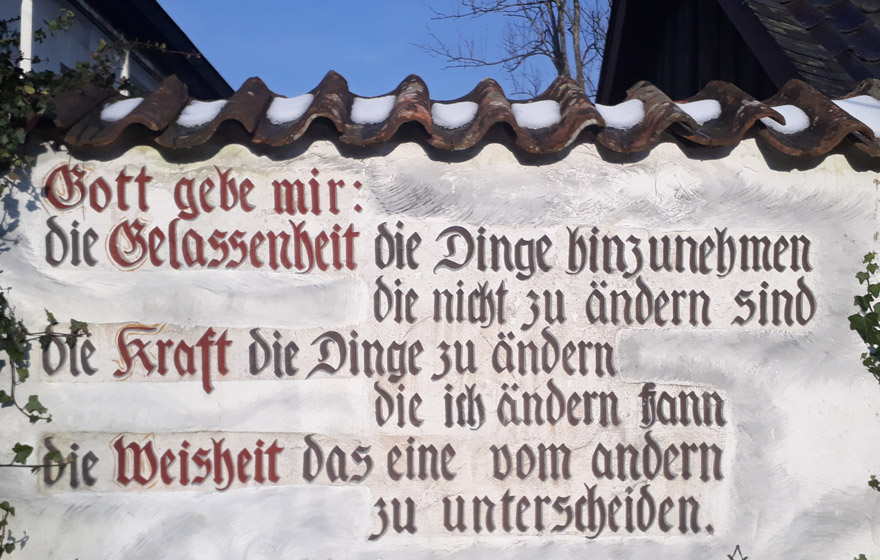 Gott gebe mir:
die Gelassenheit die Dinge hinzunehmen
die nicht zu ändern sind
die Kraft die Dinge zu ändern
die ich ändern kann
die Weisheit das eine vom andern
zu unterscheiden.